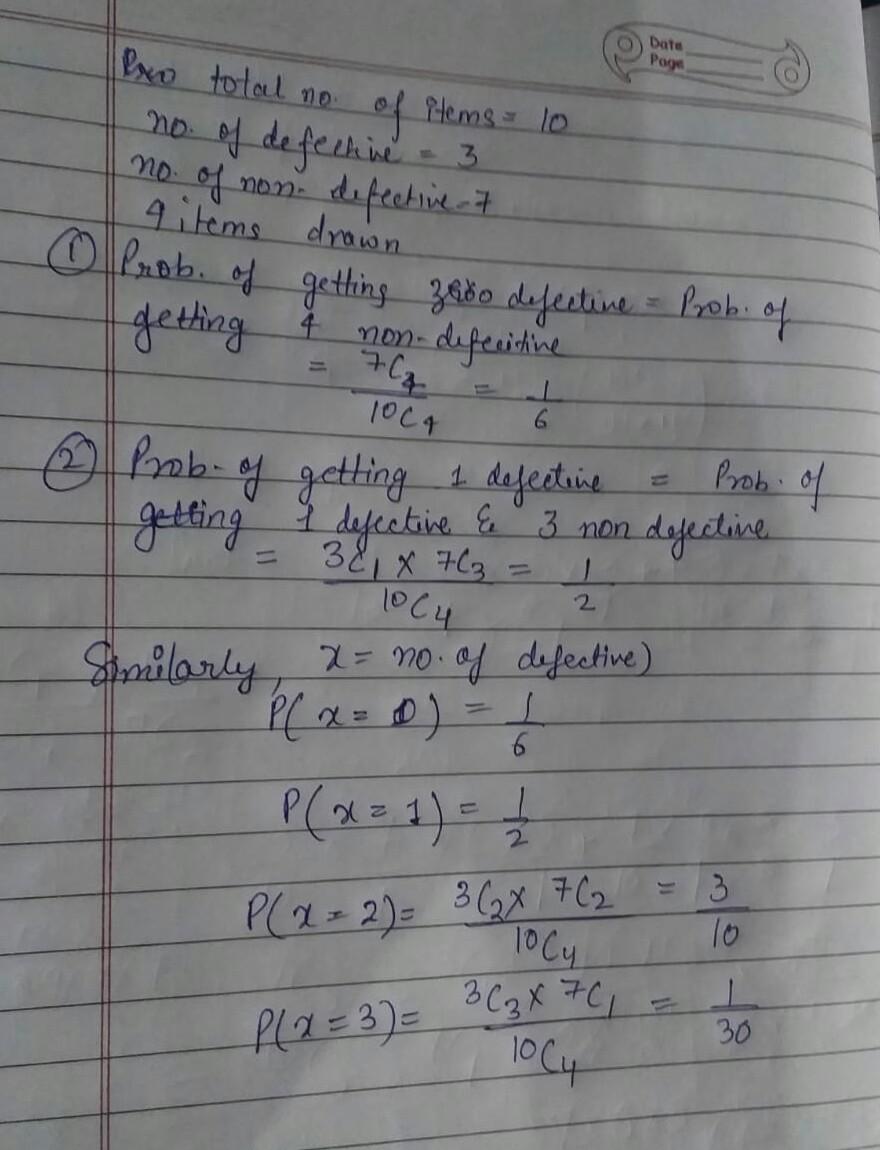 Date
Page
total no. of items = 10
no. of defective = 3
no. of non-defective - 7
4 items drawn
① Prob. of getting zero defective = Prob. of
getting 4 non-defecitive
= 7C4 / 10C4 = 1/6
② Prob. of getting 1 defective = Prob. of
getting 1 defective & 3 non defective
= 3C1 X 7C3 / 10C4 = 1/2
Similarly, x = no. of defective)
P(x = 0) = 1/6
P(x = 1) = 1/2
P(x = 2) = 3C2 X 7C2 / 10C4 = 3/10
P(x = 3) = 3C3 X 7C1 / 10C4 = 1/30